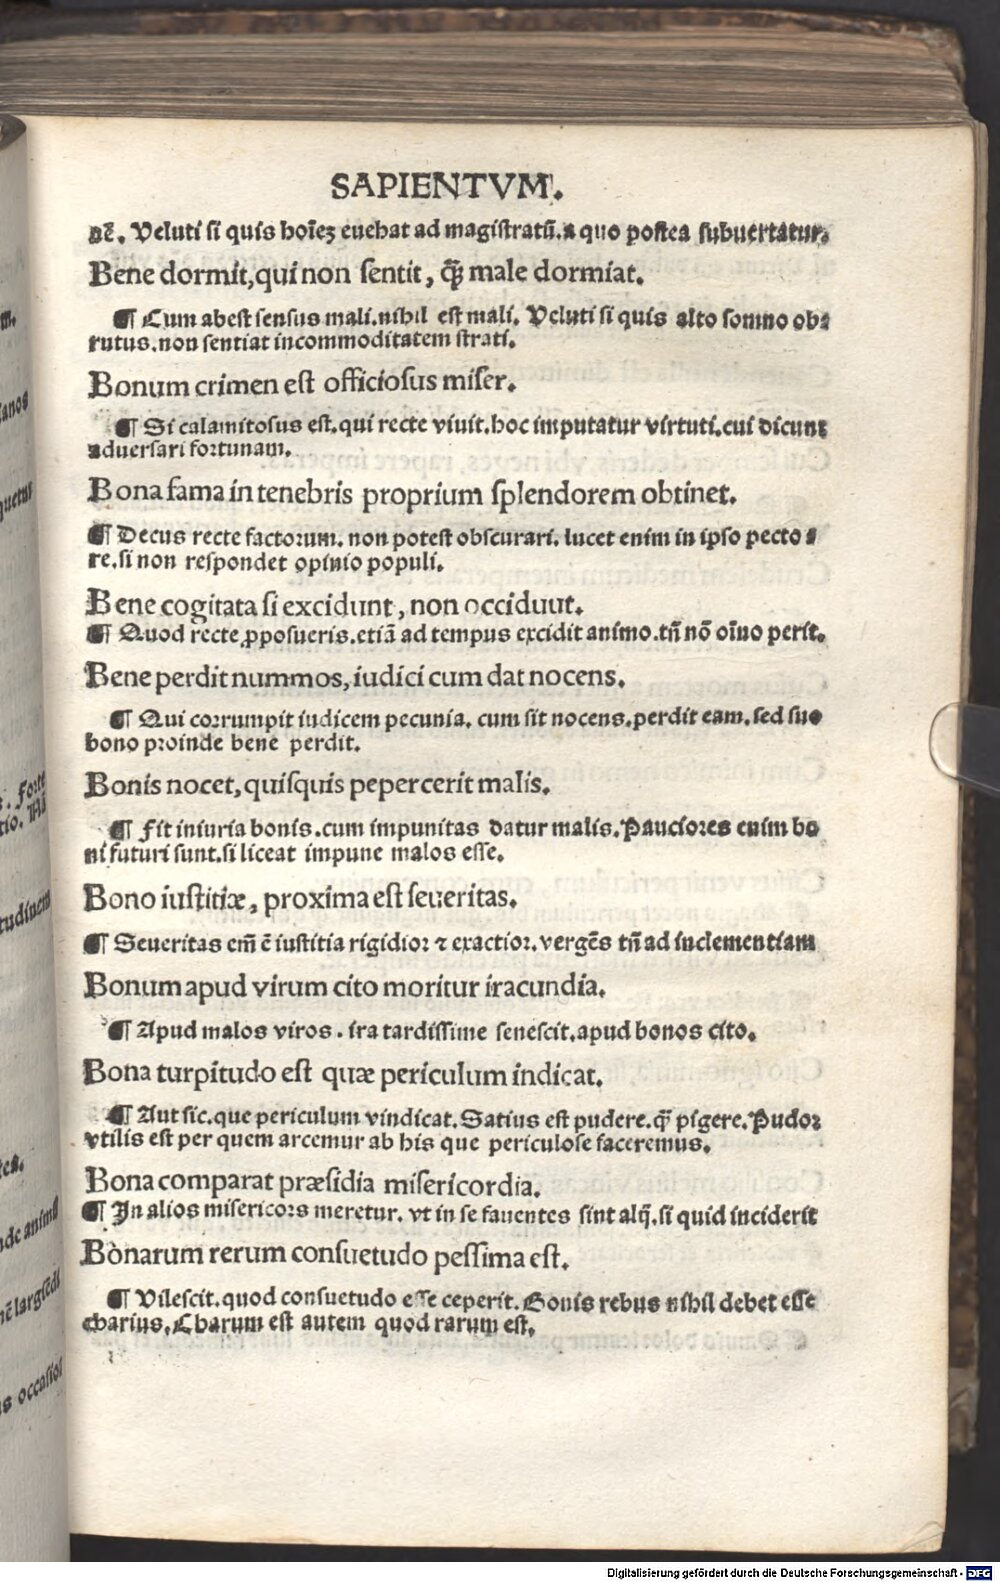 SAPIENTVM.
nē. Veluti si quis hoīeꝫ euehat ad magistratū. a quo postea subuertatur.
Bene dormit, qui non sentit, ꝙ̃ male dormiat.
¶ Cum abest sensus mali. nihil est mali. Veluti si quis alto somno ob⸗
rutus. non sentiat incommoditatem strati.
Bonum crimen est officiosus miser.
¶ Si calamitosus est. qui recte viuit. hoc imputatur virtuti. cui dicunt
aduersari fortunam.
Bona fama in tenebris proprium splendorem obtinet.
¶ Decus recte factorum. non potest obscurari. lucet enim in ipso pecto⸗
re. si non respondet opinio populi.
Bene cogitata si excidunt, non occiduut.
¶ Quod recte ꝓposueris. etiã ad tempus excidit animo. tñ nō oīno perit.
Bene perdit nummos, iudici cum dat nocens.
¶ Qui corrumpit iudicem pecunia. cum sit nocens. perdit eam. sed suo
bono proinde bene perdit.
Bonis nocet, quisquis pepercerit malis.
¶ Fit iniuria bonis. cum impunitas datur malis. Pauciores enim bo
ni futuri sunt. si liceat impune malos esse.
Bono iustitiæ, proxima est seueritas.
¶ Seueritas em̄ ē iustitia rigidior ⁊ exactior. vergēs tñ ad inclementiam
Bonum apud virum cito moritur iracundia.
¶ Apud malos viros. ira tardissime senescit. apud bonos cito.
Bona turpitudo est quæ periculum indicat.
¶ Aut sic. que periculum vindicat. Satius est pudere. ꝙ̃ pigere. Pudor
vtilis est per quem arcemur ab his que periculose faceremus.
Bona comparat præsidia misericordia.
¶ In alios misericors meretur. vt in se fauentes sint alq̃. si quid inciderit
Bonarum rerum consuetudo pessima est.
¶ Vilescit. quod consuetudo esse ceperit. Bonis rebus nihil debet esse
charius. Charum est autem quod rarum est.
Digitalisierung gefördert durch die Deutsche Forschungsgemeinschaft - DFG